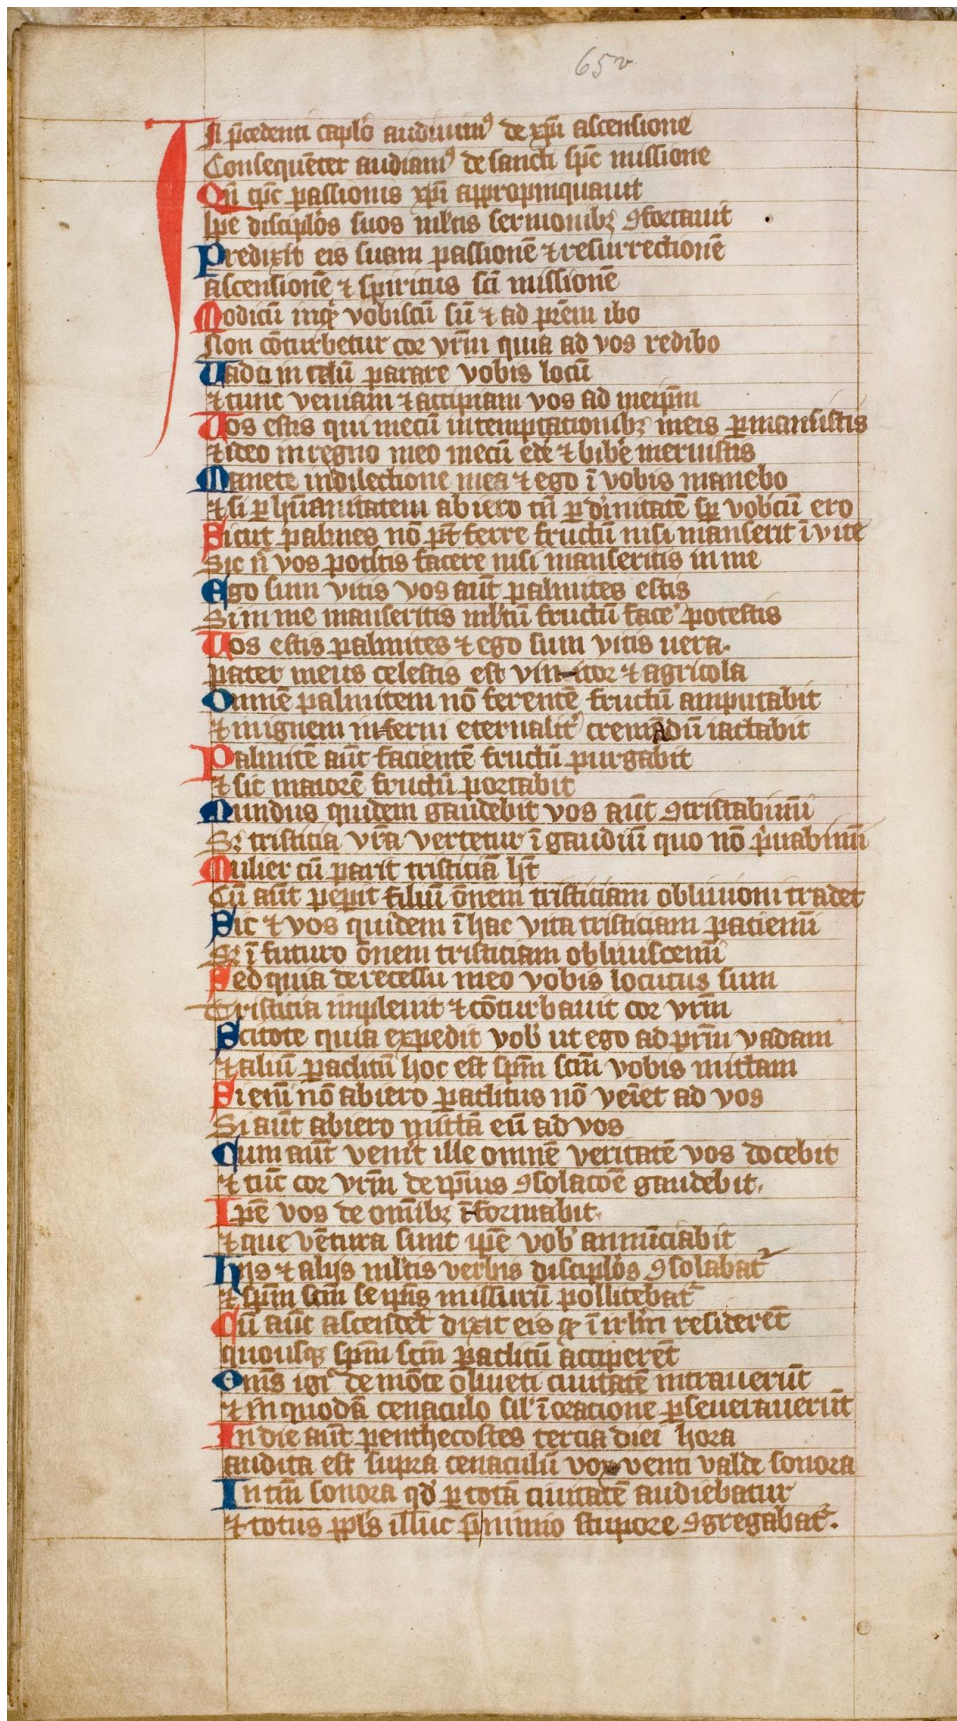 65v
In p̄cedenti capl'o audiuimꝰ de xp̄i ascensione
Consequēter audiamꝰ de sancti sp̄c missione
Qn̄ tp̄c passionis xp̄i appropinquauit
Ip̄e discipl'os suos ml'tis sermonibꝫ ꝯfortauit
Predixit eis suam passionē ⁊ resurrectionē
ascensionē ⁊ spiritus sc̄i missionē
Modicū inqͥt vobiscū sū ⁊ ad pr̄em ibo
Non cōturbetur cor vr̄m quia ad vos redibo
Vado in celū parare vobis locū
⁊ tunc veniam ⁊ accipiam vos ad meip̄m
Vos estis qui mecū in temptationibꝫ meis ꝑmansistis
⁊ ideo in regno meo mecū edē ⁊ bibē meruistis
Manete in dilectione mea ⁊ ego ī vobis manebo
⁊ si ꝑ hūanitatem abiero tn̄ ꝑ diuinitatē sꝑ vobcū ero
Sicut palmes nō pōt ferre fructū nisi manserit ī vite
Sic n̄ vos potestis facere nisi manseritis in me
Ego sum vitis vos aūt palmites estis
Si in me manseritis ml'tū fructū facē potestis
Vos estis palmites ⁊ ego sum vitis uera.
pater meus celestis est vinitor ⁊ agricola
Omnē palmitem nō ferentē fructū amputabit
⁊ in ignem inferni eternalitͬ cremādū iactabit
Palmitē aūt facientē fructū purgabit
⁊ sic maiorē fructū portabit
Mundus quidem gaudebit vos aūt ꝯtristabimī
Sꝫ tristicia vr̄a vertetur ī gaudiū quo nō pͥuabimī
Mulier cū parit tristiciā hꝫt
Cū aūt peꝑit filiū ōnem tristiciam obliuioni tradet
Sic ⁊ vos quidem ī hac vita tristiciam patiemī
Sꝫ ī futuro ōnem tristiciam obliuiscemī
Sed quia de recessu meo vobis locutus sum
Tristicia impleuit ⁊ cōturbauit cor vr̄m
Scitote quia expedit vob' ut ego ad pr̄m vadam
⁊ aliū paclitū hoc est sp̄m sc̄m vobis mittam
Si enī nō abiero paclitus nō veīet ad vos
Si aūt abiero mittā eū ad vos
Cum aūt venīt ille omnē veritatē vos docebit
⁊ tūc cor vr̄m de ip̄ius ꝯsolacōe gaudebit.
Ip̄e vos de omībꝫ īformabit.
⁊ que vētura sunt ip̄e vob' annūciabit
Hijs ⁊ alijs ml'tis verbis discipl'os ꝯsolabat᷑
⁊ sp̄m sc̄m se ip̄is missurū pollicebat᷑
Cū aūt ascendēt dixit eis qͥ ī irl'm residerēt
quousqꝫ sp̄m sc̄m paclitū acciperēt
Om̄s igiͬ de mōte oliueti ciuitatē intrauerūt
⁊ in quodā cenaculo sil' ī oracione ꝑseuerauerūt
In die aūt penthecostes tercia diei hora
audita est supra cenaculū vox venti valde sonora
In tm̄ sonora qd' ꝑ totā ciuitatē audiebatur
⁊ totus pp̄ls illuc p̄ nimio stupore ꝯgregabat᷑.